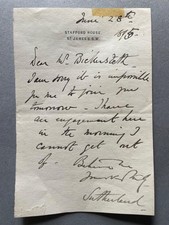 June 28th
STAFFORD HOUSE,
ST JAMES'S. S.W.
1875
Dear Mr. Bickersteth
I am sorry it is impossible
for me to join you
tomorrow I have
an engagement here
in the morning I
cannot get out
of
Sutherland